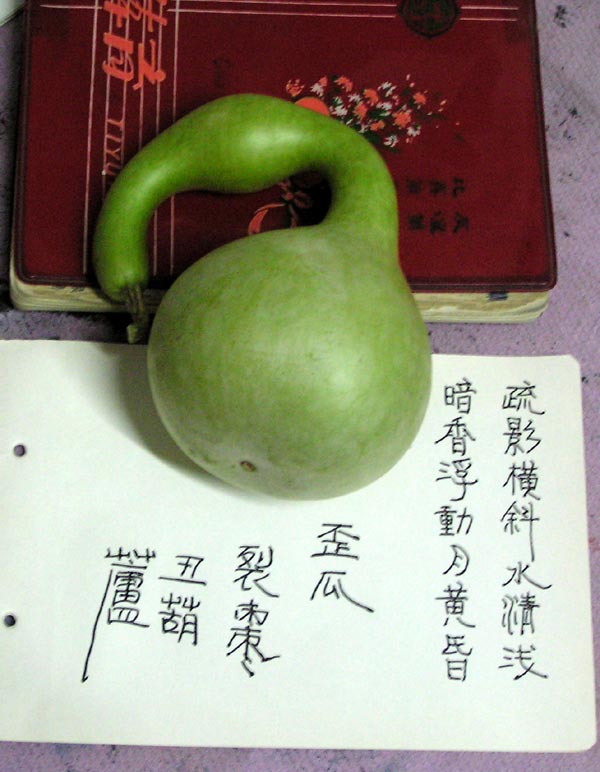 疏影横斜水清浅
暗香浮動月黄昏
歪瓜
裂棗
丑葫
蘆